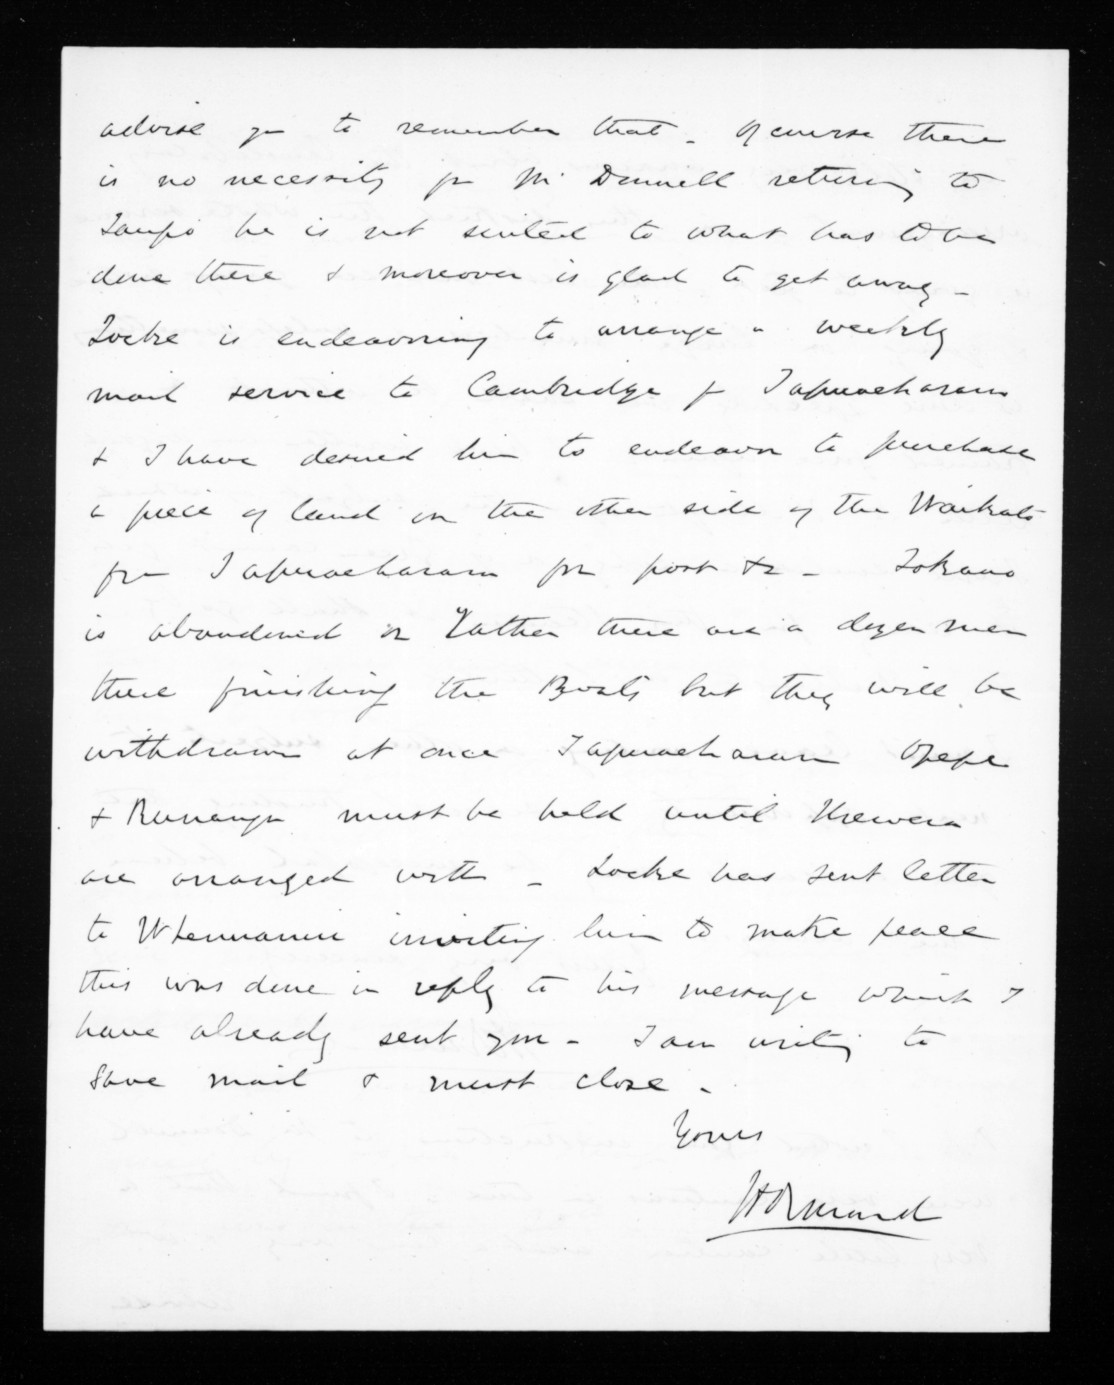 advise you to remember that - Of course there
is no necessity for McDonnell returning to
Taupo he is not suited to what has to be
done there & moreover is glad to get away -
Locke is endeavoring to arrange a weekly
mail service to Cambridge fr Tapuaeharuru
& I have desired him to endeavor to purchase
a piece of land on the other side of the Waikato
from Tapuaeharuru for post &c - Tokano
is abandoned or rather there are a dozen men
there finishing the Boats but they will be
withdrawn at once Tapuaeharuru Opepe
& Runanga must be held until Urewera
are arranged with - Locke has sent letter
to inviting him to make peace
this was done in reply to his message which I
have already sent you - I am writing to
save mail & must close -
Yours
JDOrmond